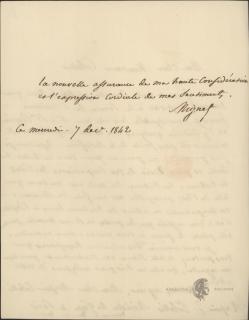 la nouvelle assurance de ma haute considération
et l'expression cordiale de mes sentiments,
Mignet
Ce mercredi - 7 dec. 1842